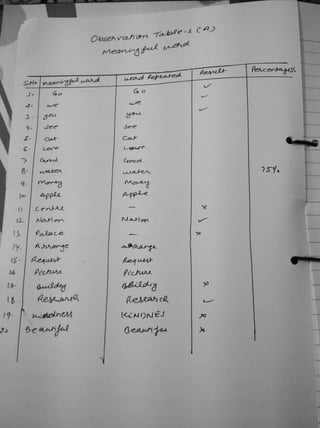 Observation Table-1 (A)
Meaningful word
S.No Meaningful word word Repeated Result Percentage%
1. Go Go ✓
2. we we ✓
3. you you ✓
4. see see
5. Cat Cat
6. Love Love
7 Good Good
8. water water 75%
9. Money Money
10 Apple Apple
11 Centre — ×
12. Nation Nation ✓
13 Palace — ×
14. Arrange arrange
15. Request Request
16 Picture Picture
17 Buildig Buildig ×
18. Research Research ✓
19. kindness KINDNES ×
20 Beautiful Beautifu ×